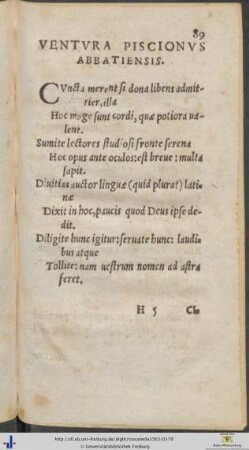 89
VENTVRA PISCIONVS
ABBATIENSIS.
CVncta merent si dona libens admit-
titer, illa
Hoc mage sunt cordi, quæ potiora ua-
lent.
Sumite lectores studiosi fronte serena
Hoc opus ante oculos: est breue: multa
sapit.
Diuitias auctor linguæ (quid plura?) lati-
næ
Dixit in hoc, paucis quod Deus ipse de-
dit.
Diligite hunc igitur: seruate hunc: laudi-
bus atque
Tollite: nam uestrum nomen ad astra
feret.
H 5 Cla
© Universitätsbibliothek Freiburg